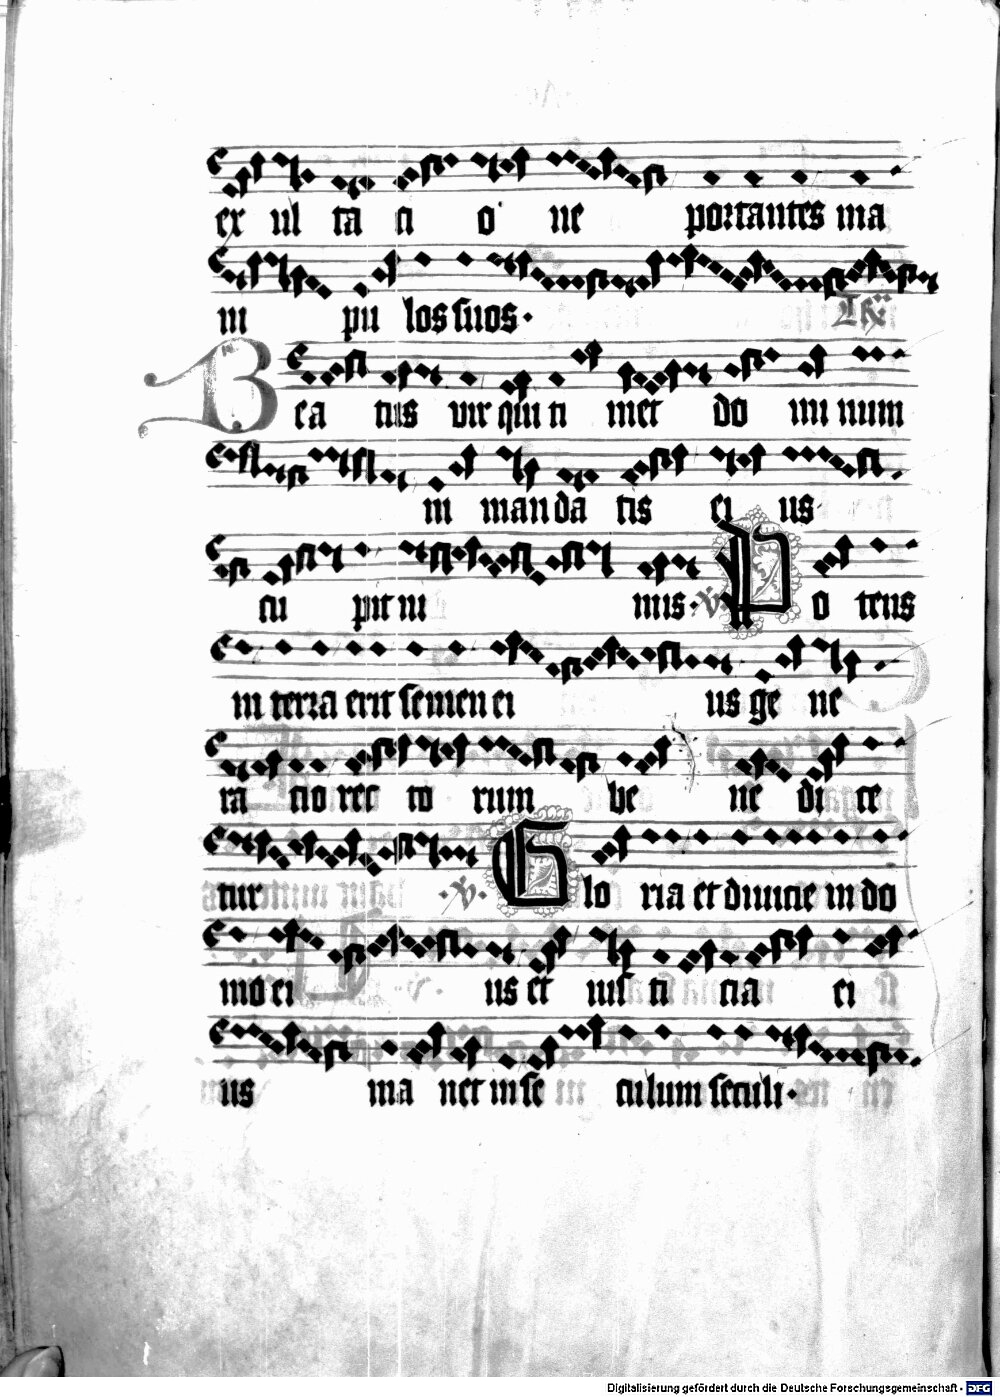 ex ul ta ti o ne portantes ma
ni pu los suos. Tr̄
Bea tus vir qui ti met do mi num
in man da tis ei us
cu pit ni mis. V̄. Po tens
in terra erit semen ei us ge ne
ra tio rec to rum be ne di ce
tur .V̄. Glo ria et divicie in do
mo ei us et ius ti cia ei
us ma net in se culum seculi.
Digitalisierung gefördert durch die Deutsche Forschungsgemeinschaft - DFG